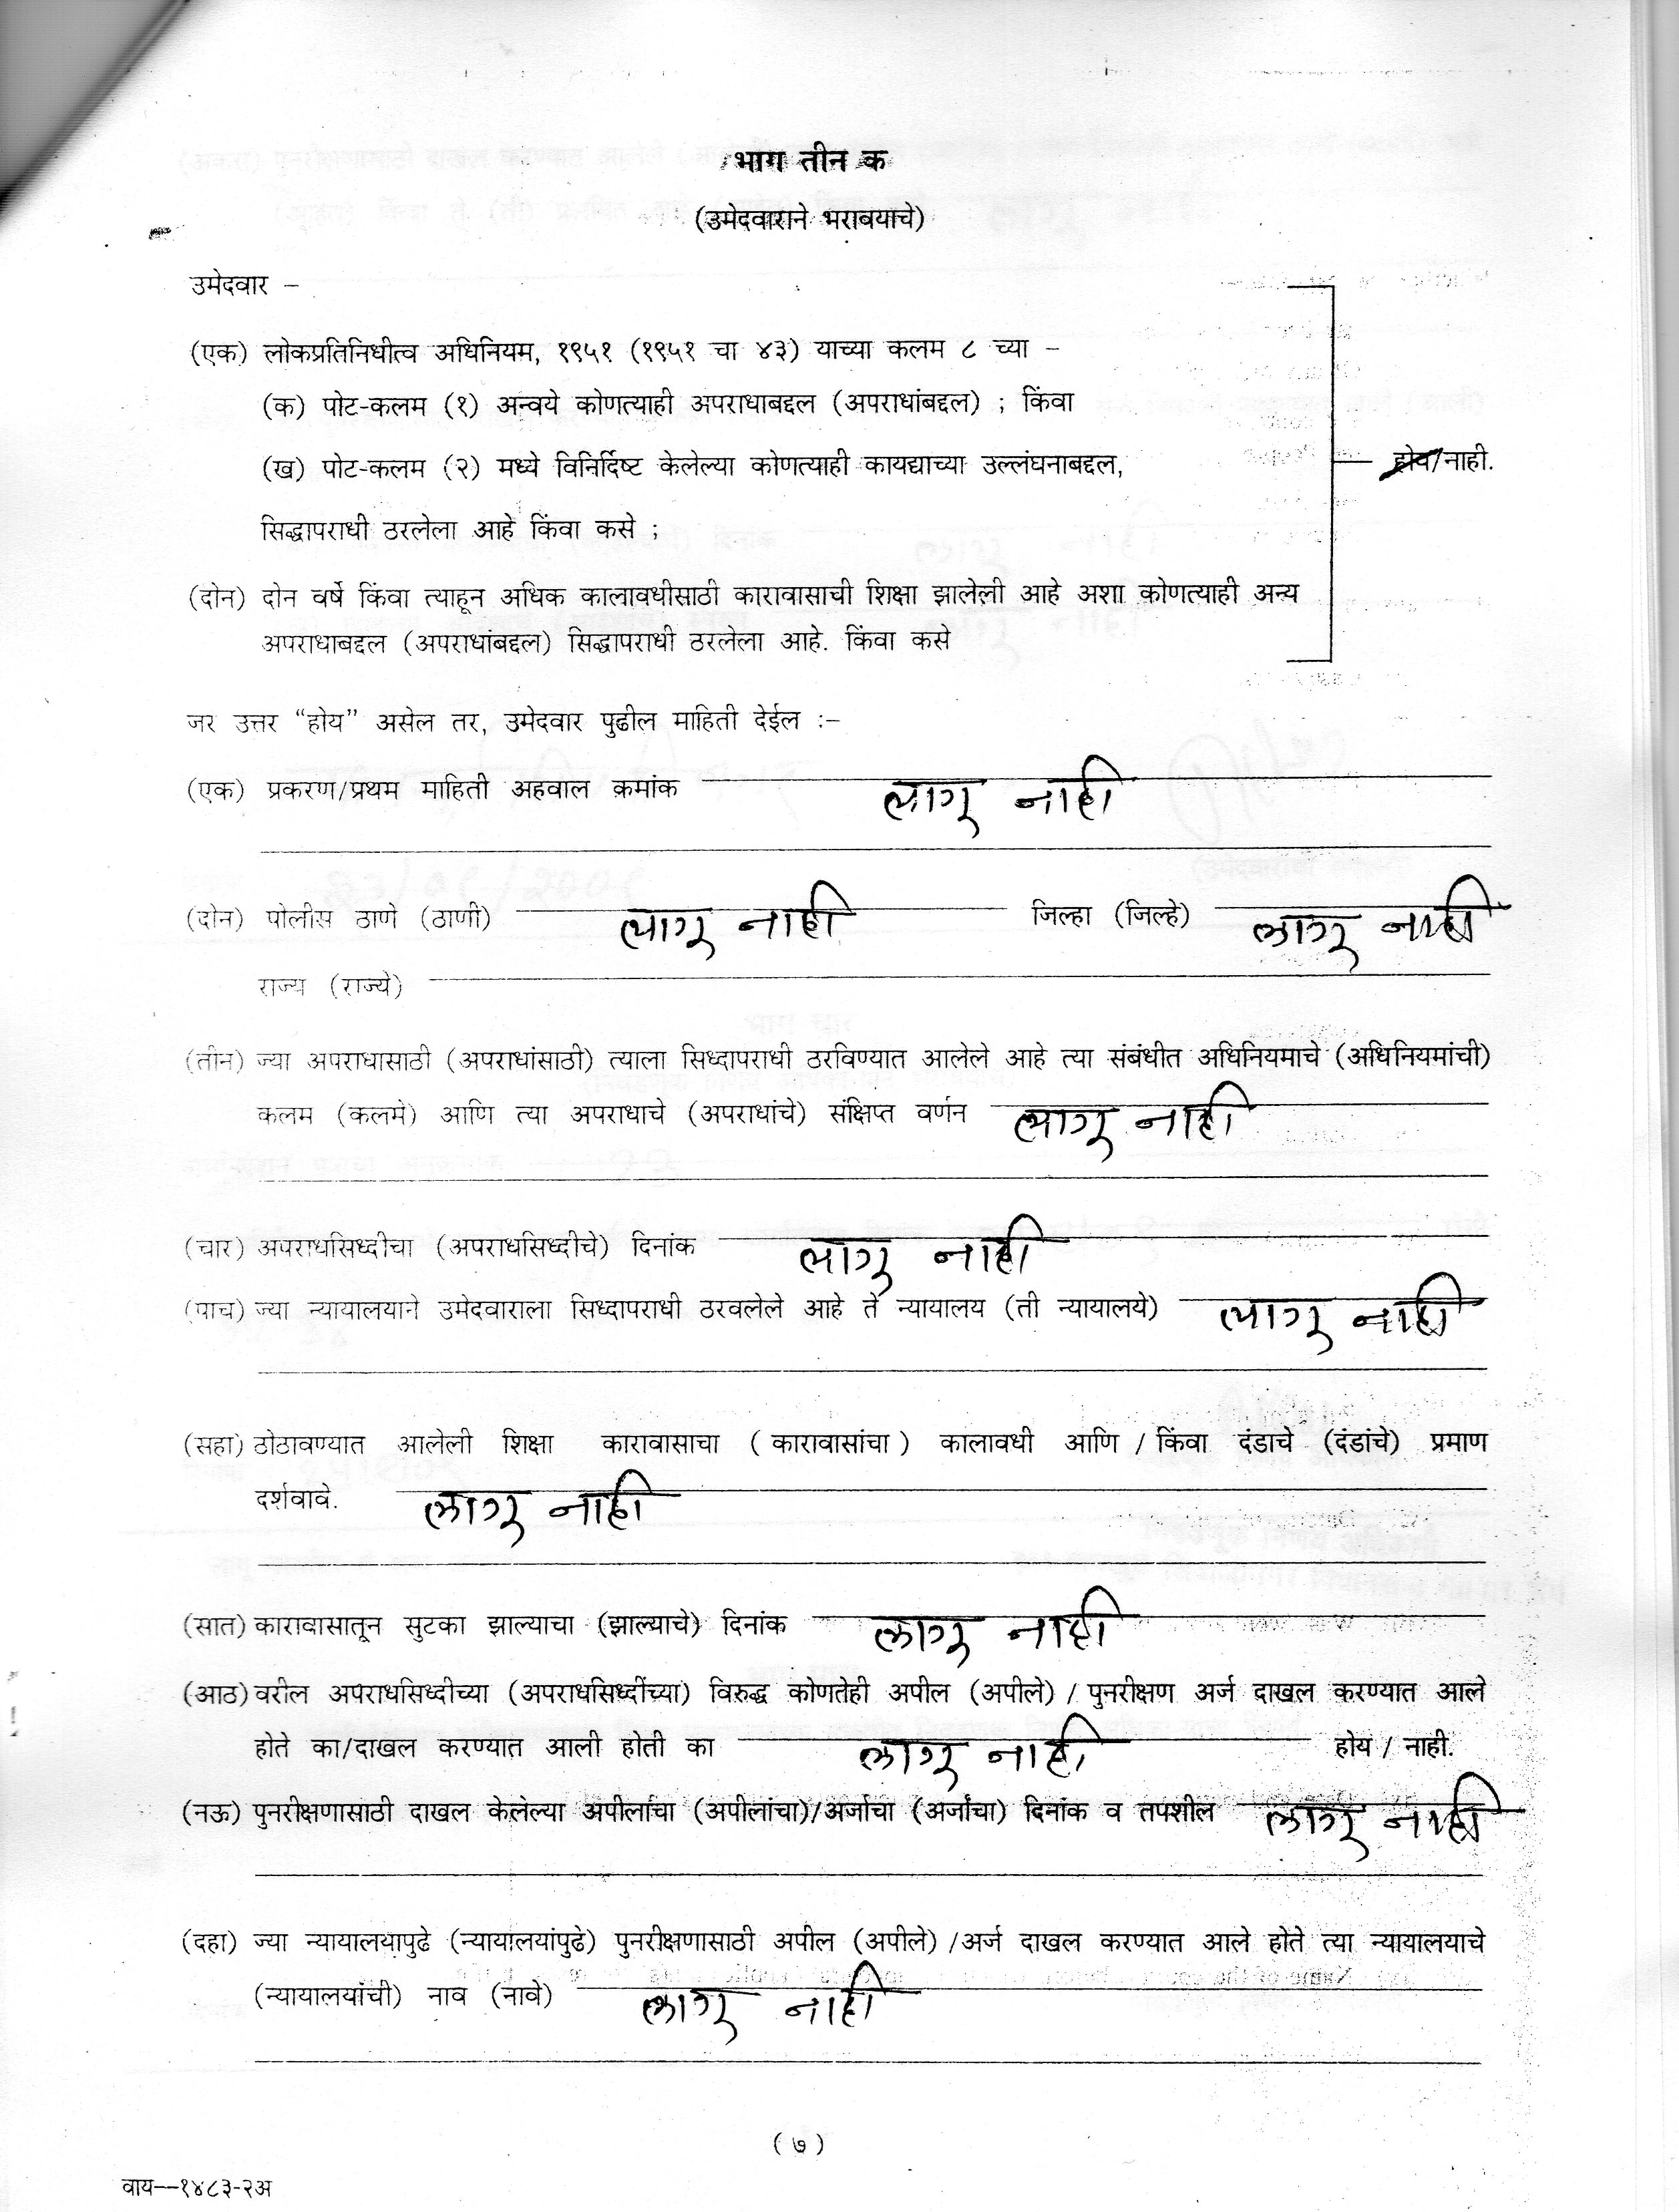 भाग तीन क
(उमेदवाराने भरावयाचे)
उमेदवार –
(एक) लोकप्रतिनिधीत्व अधिनियम, १९५१ (१९५१ चा ४३) याच्या कलम ८ च्या –
(क) पोट-कलम (१) अन्वये कोणत्याही अपराधाबद्दल (अपराधांबद्दल) ; किंवा
(ख) पोट-कलम (२) मध्ये विनिर्दिष्ट केलेल्या कोणत्याही कायद्याच्या उल्लंघनाबद्दल,
होय/नाही.
सिद्धापराधी ठरलेला आहे किंवा कसे ;
(दोन) दोन वर्षे किंवा त्याहून अधिक कालावधीसाठी कारावासाची शिक्षा झालेली आहे अशा कोणत्याही अन्य
अपराधाबद्दल (अपराधांबद्दल) सिद्धापराधी ठरलेला आहे. किंवा कसे
जर उत्तर “होय” असेल तर, उमेदवार पुढील माहिती देईल :–
(एक) प्रकरण/प्रथम माहिती अहवाल क्रमांक लागू नाही
(दोन) पोलीस ठाणे (ठाणी) लागू नाही जिल्हा (जिल्हे) लागू नाही
राज्य (राज्ये)
(तीन) ज्या अपराधासाठी (अपराधांसाठी) त्याला सिध्दापराधी ठरविण्यात आलेले आहे त्या संबंधीत अधिनियमाचे (अधिनियमांची)
कलम (कलमे) आणि त्या अपराधाचे (अपराधांचे) संक्षिप्त वर्णन लागू नाही
(चार) अपराधसिध्दीचा (अपराधसिध्दीचे) दिनांक लागू नाही
(पाच) ज्या न्यायालयाने उमेदवाराला सिध्दापराधी ठरवलेले आहे ते न्यायालय (ती न्यायालये) लागू नाही
(सहा) ठोठावण्यात आलेली शिक्षा कारावासाचा (कारावासांचा) कालावधी आणि / किंवा दंडाचे (दंडांचे) प्रमाण
दर्शवावे. लागू नाही
(सात) कारावासातून सुटका झाल्याचा (झाल्याचे) दिनांक लागू नाही
(आठ) वरील अपराधसिध्दीच्या (अपराधसिध्दींच्या) विरुद्ध कोणतेही अपील (अपीले) / पुनरीक्षण अर्ज दाखल करण्यात आले
होते का/दाखल करण्यात आली होती का लागू नाही होय / नाही.
(नऊ) पुनरीक्षणासाठी दाखल केलेल्या अपीलाचा (अपीलांचा)/अर्जाचा (अर्जांचा) दिनांक व तपशील लागू नाही
(दहा) ज्या न्यायालयापुढे (न्यायालयांपुढे) पुनरीक्षणासाठी अपील (अपीले) /अर्ज दाखल करण्यात आले होते त्या न्यायालयाचे
(न्यायालयांची) नाव (नावे) लागू नाही
(७)
वाय--१४८३-२अ